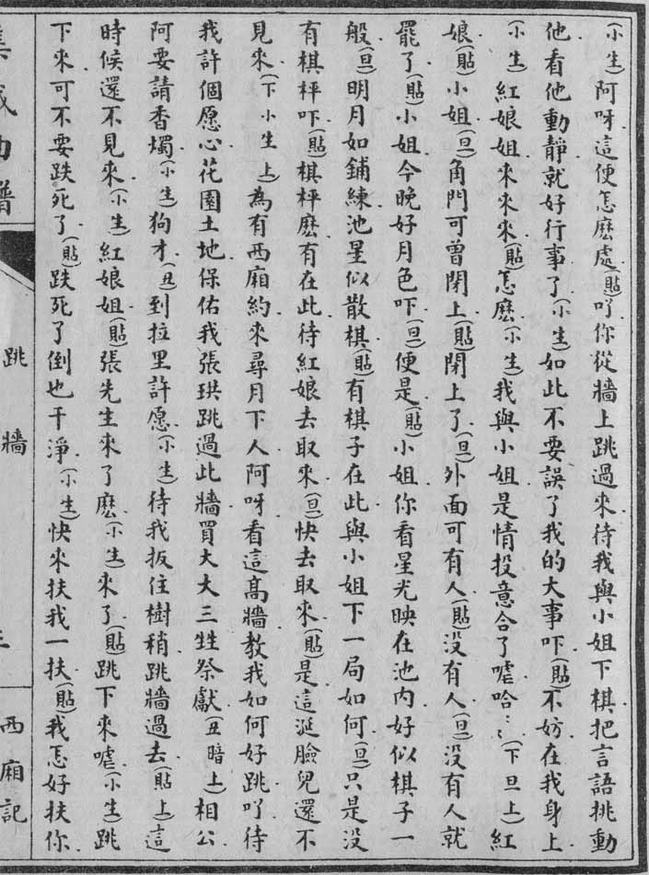 (小生)阿呀這便怎麽處(貼)吖你從牆上跳過來待我與小姐下棋把言語挑動
他看他動靜就好行事了(小生)如此不要誤了我的大事吓(貼)不妨在我身上
(小生)紅娘姐來來來(貼)怎麽(小生)我與小姐是情投意合了嘘哈…(下旦上)紅
娘(貼)小姐(旦)角門可曾閉上(貼)閉上了(旦)外面可有人(貼)没有人(旦)没有人就
罷了(貼)小姐今晚好月色吓(旦)便是(貼)小姐你看星光映在池内好似棋子一
般(旦)明月如鋪練池星似散棋(貼)有棋子在此與小姐下一局如何(旦)只是没
有棋枰吓(貼)棋枰麽有在此待紅娘去取來(旦)快去取來(貼)是這涎臉兒還不
見來(下小生上)為有西廂約來尋月下人阿呀看這高牆教我如何好跳吖待
我許個愿心花園土地保佑我張珙跳過此牆買大大三牲祭獻(丑暗上)相公
阿要請香燭(小生)狗才(丑)到拉里許愿(小生)待我扳住樹稍跳牆過去(貼上)這
時候還不見來(小生)紅娘姐(貼)張先生來了麽(小生)來了(貼)跳下來嘘(小生)跳
下來可不要跌死了(貼)跌死了倒也干淨(小生)快來扶我一扶(貼)我怎好扶你
集成曲譜
跳牆
西廂記